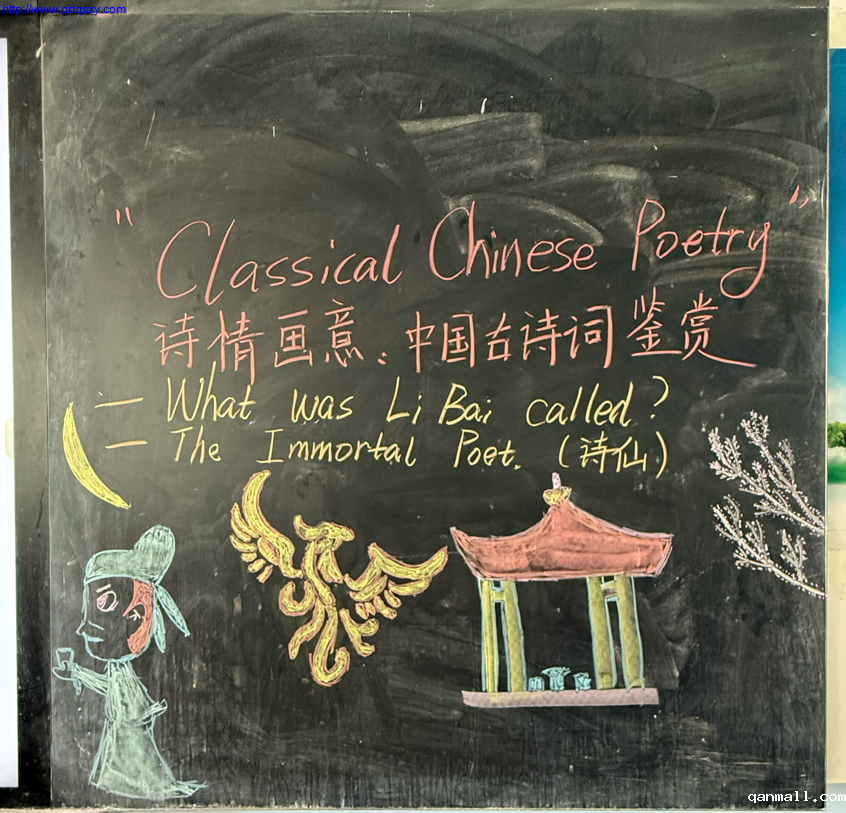 http://www.gdqaxy.com
"Classical Chinese Poetry"
诗情画意:中国古诗词鉴赏
— What was Li Bai called?
— The Immortal Poet. (诗仙)
qanmall.com